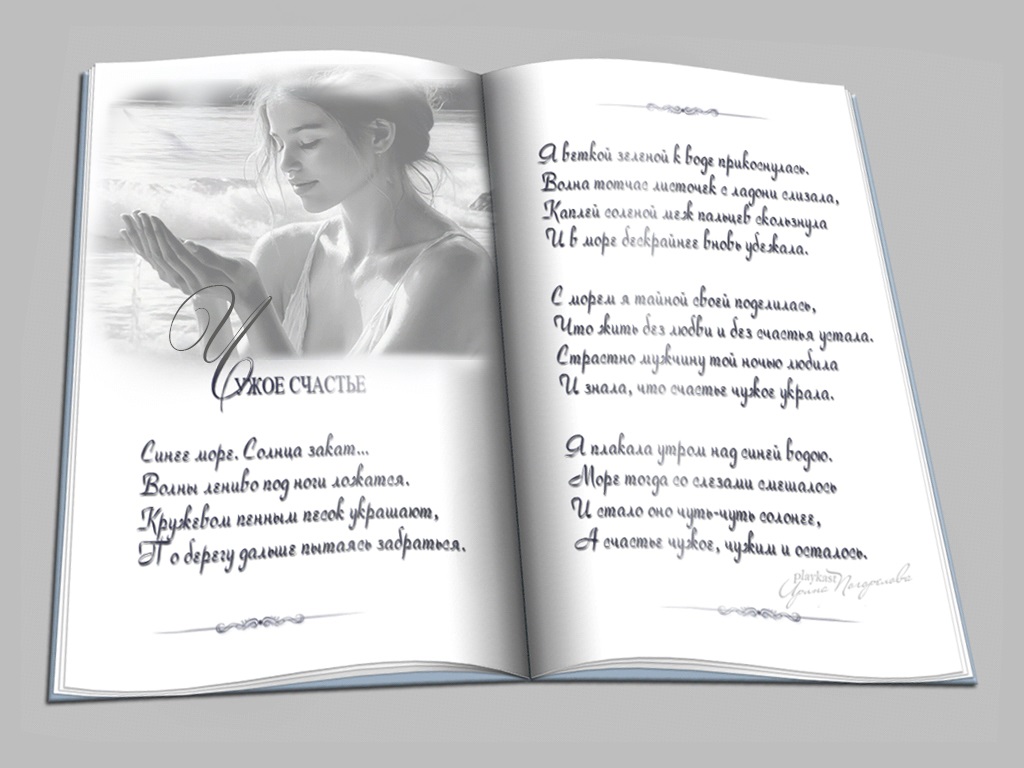 Чужое счастье
Синее море. Солнца закат...
Волны лениво под ноги ложатся.
Кружевом пенным песок украшают,
По берегу дальше пытаясь забраться.
Я веткой зеленой к воде прикоснулась.
Волна тотчас листочек с ладони слизала,
Каплей соленой меж пальцев скользнула
И в море бескрайнее вновь убежала.
С морем я тайной своей поделилась,
Что жить без любви и без счастья устала.
Страстно мужчину той ночью любила
И знала, что счастье чужое украла.
Я плакала утром над синей водою.
Море тогда со слезами смешалось
И стало оно чуть-чуть солонее,
А счастье чужое, чужим и осталось.
playkast
Ирина